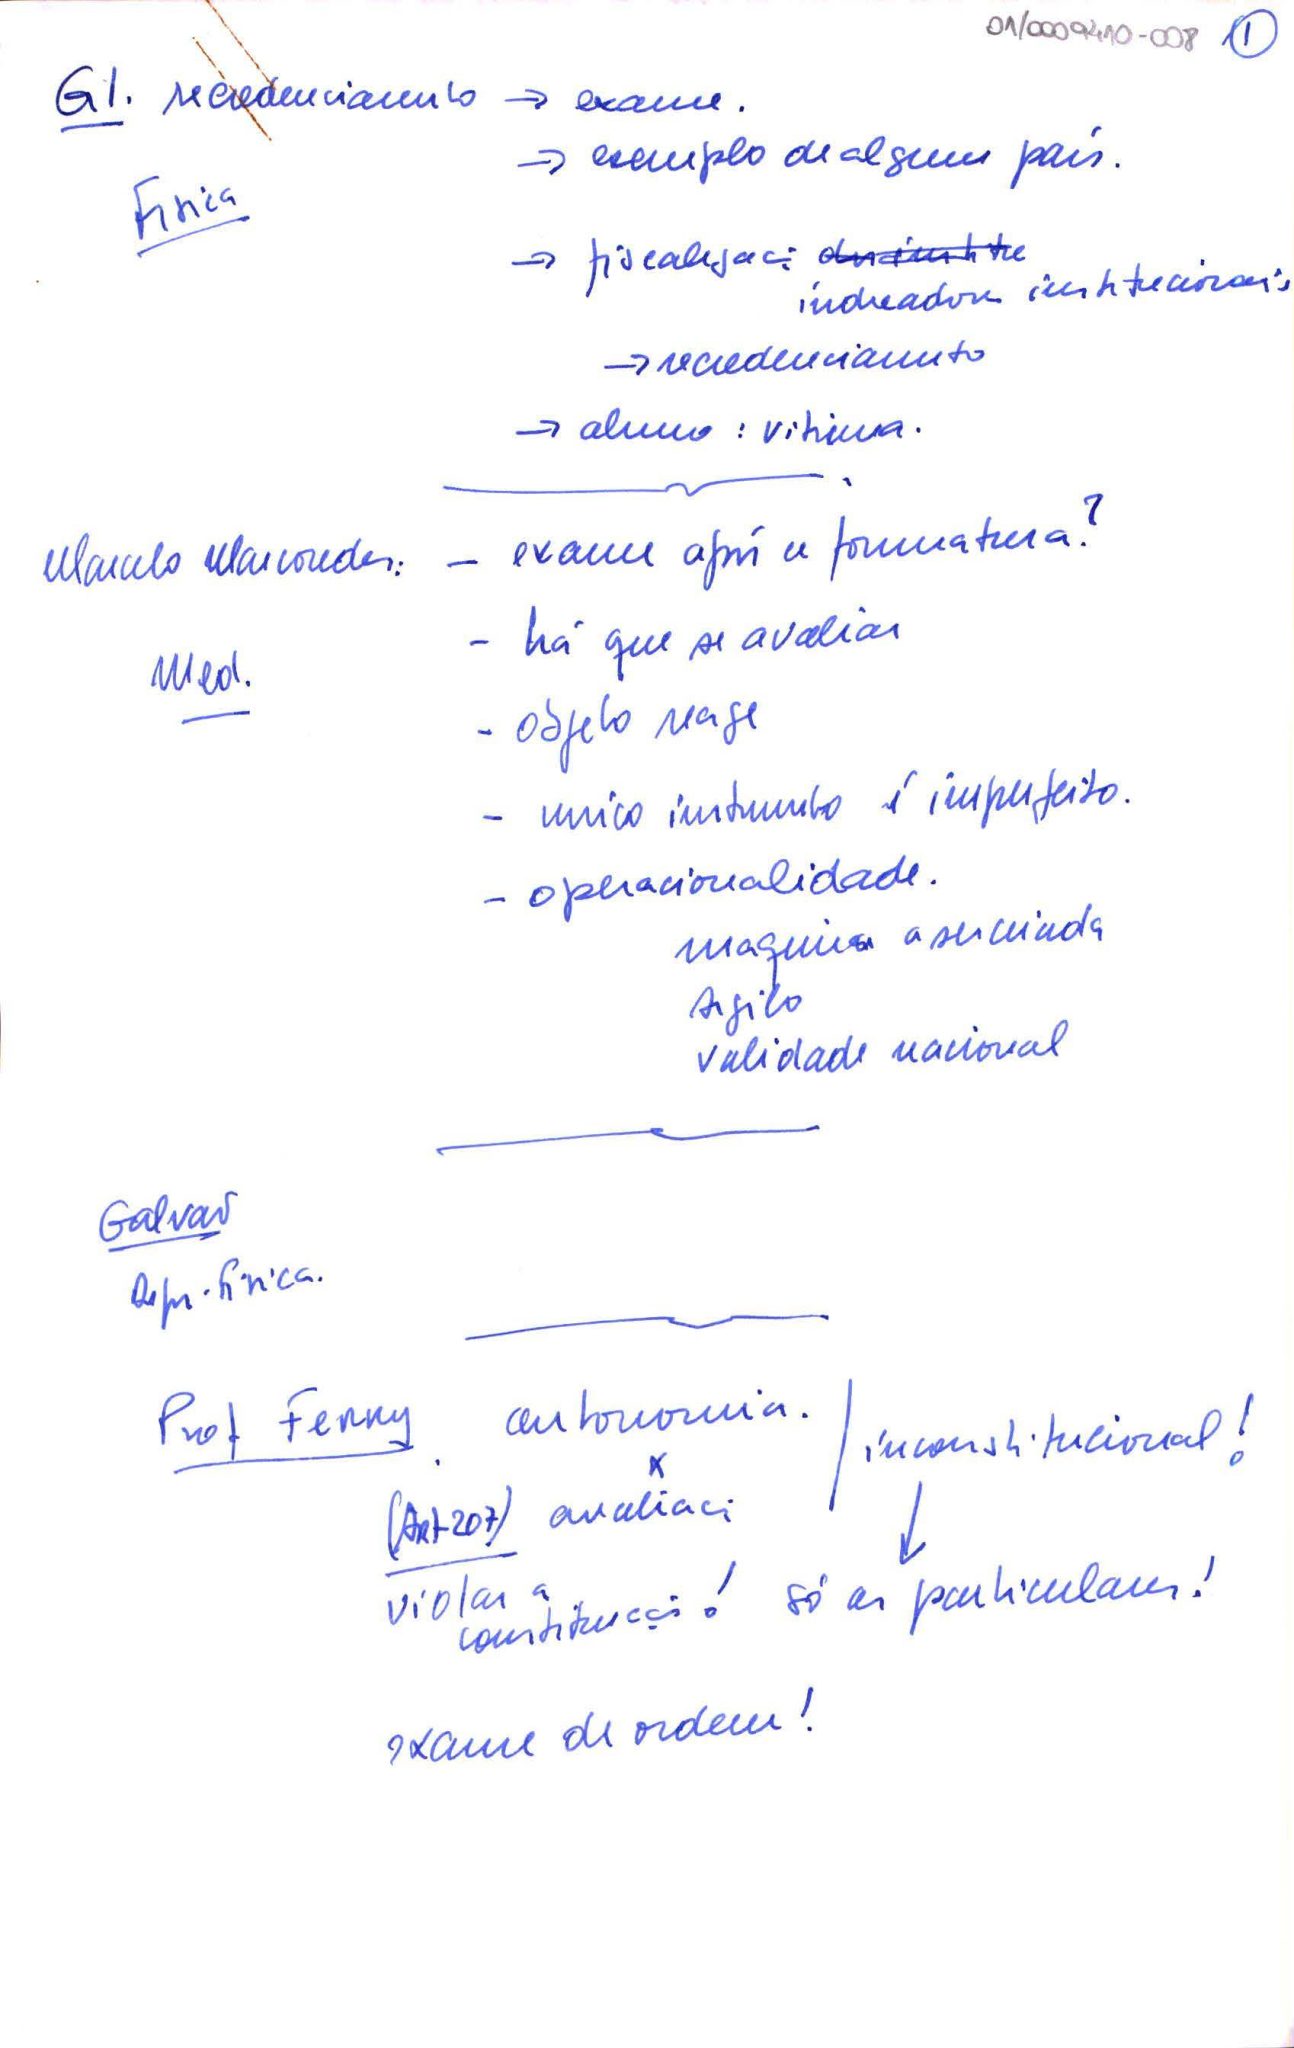 01/0009410-008 1
G1. recredenciamento → exame.
→ exemplo de algum país.
Física
→ fiscalizaçã
indicadores institucionais
→ recredenciamento
→ aluno : vítima.
Marcelo Marcondes: - exame após a formatura?
- há que se avaliar
Med.
- objeto reage
- unico instrumento é imperfeito.
- operacionalidade.
maquina
sigilo
validade nacional
Galvão
Depr. Física.
Prof Ferry. autonomia. / inconstitucional!
x
(Art 207) avaliaçã
violar a constituição! só as particulares!
exame de ordem!